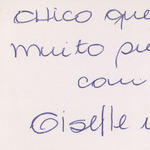 Chico que
muito
com
Giselle